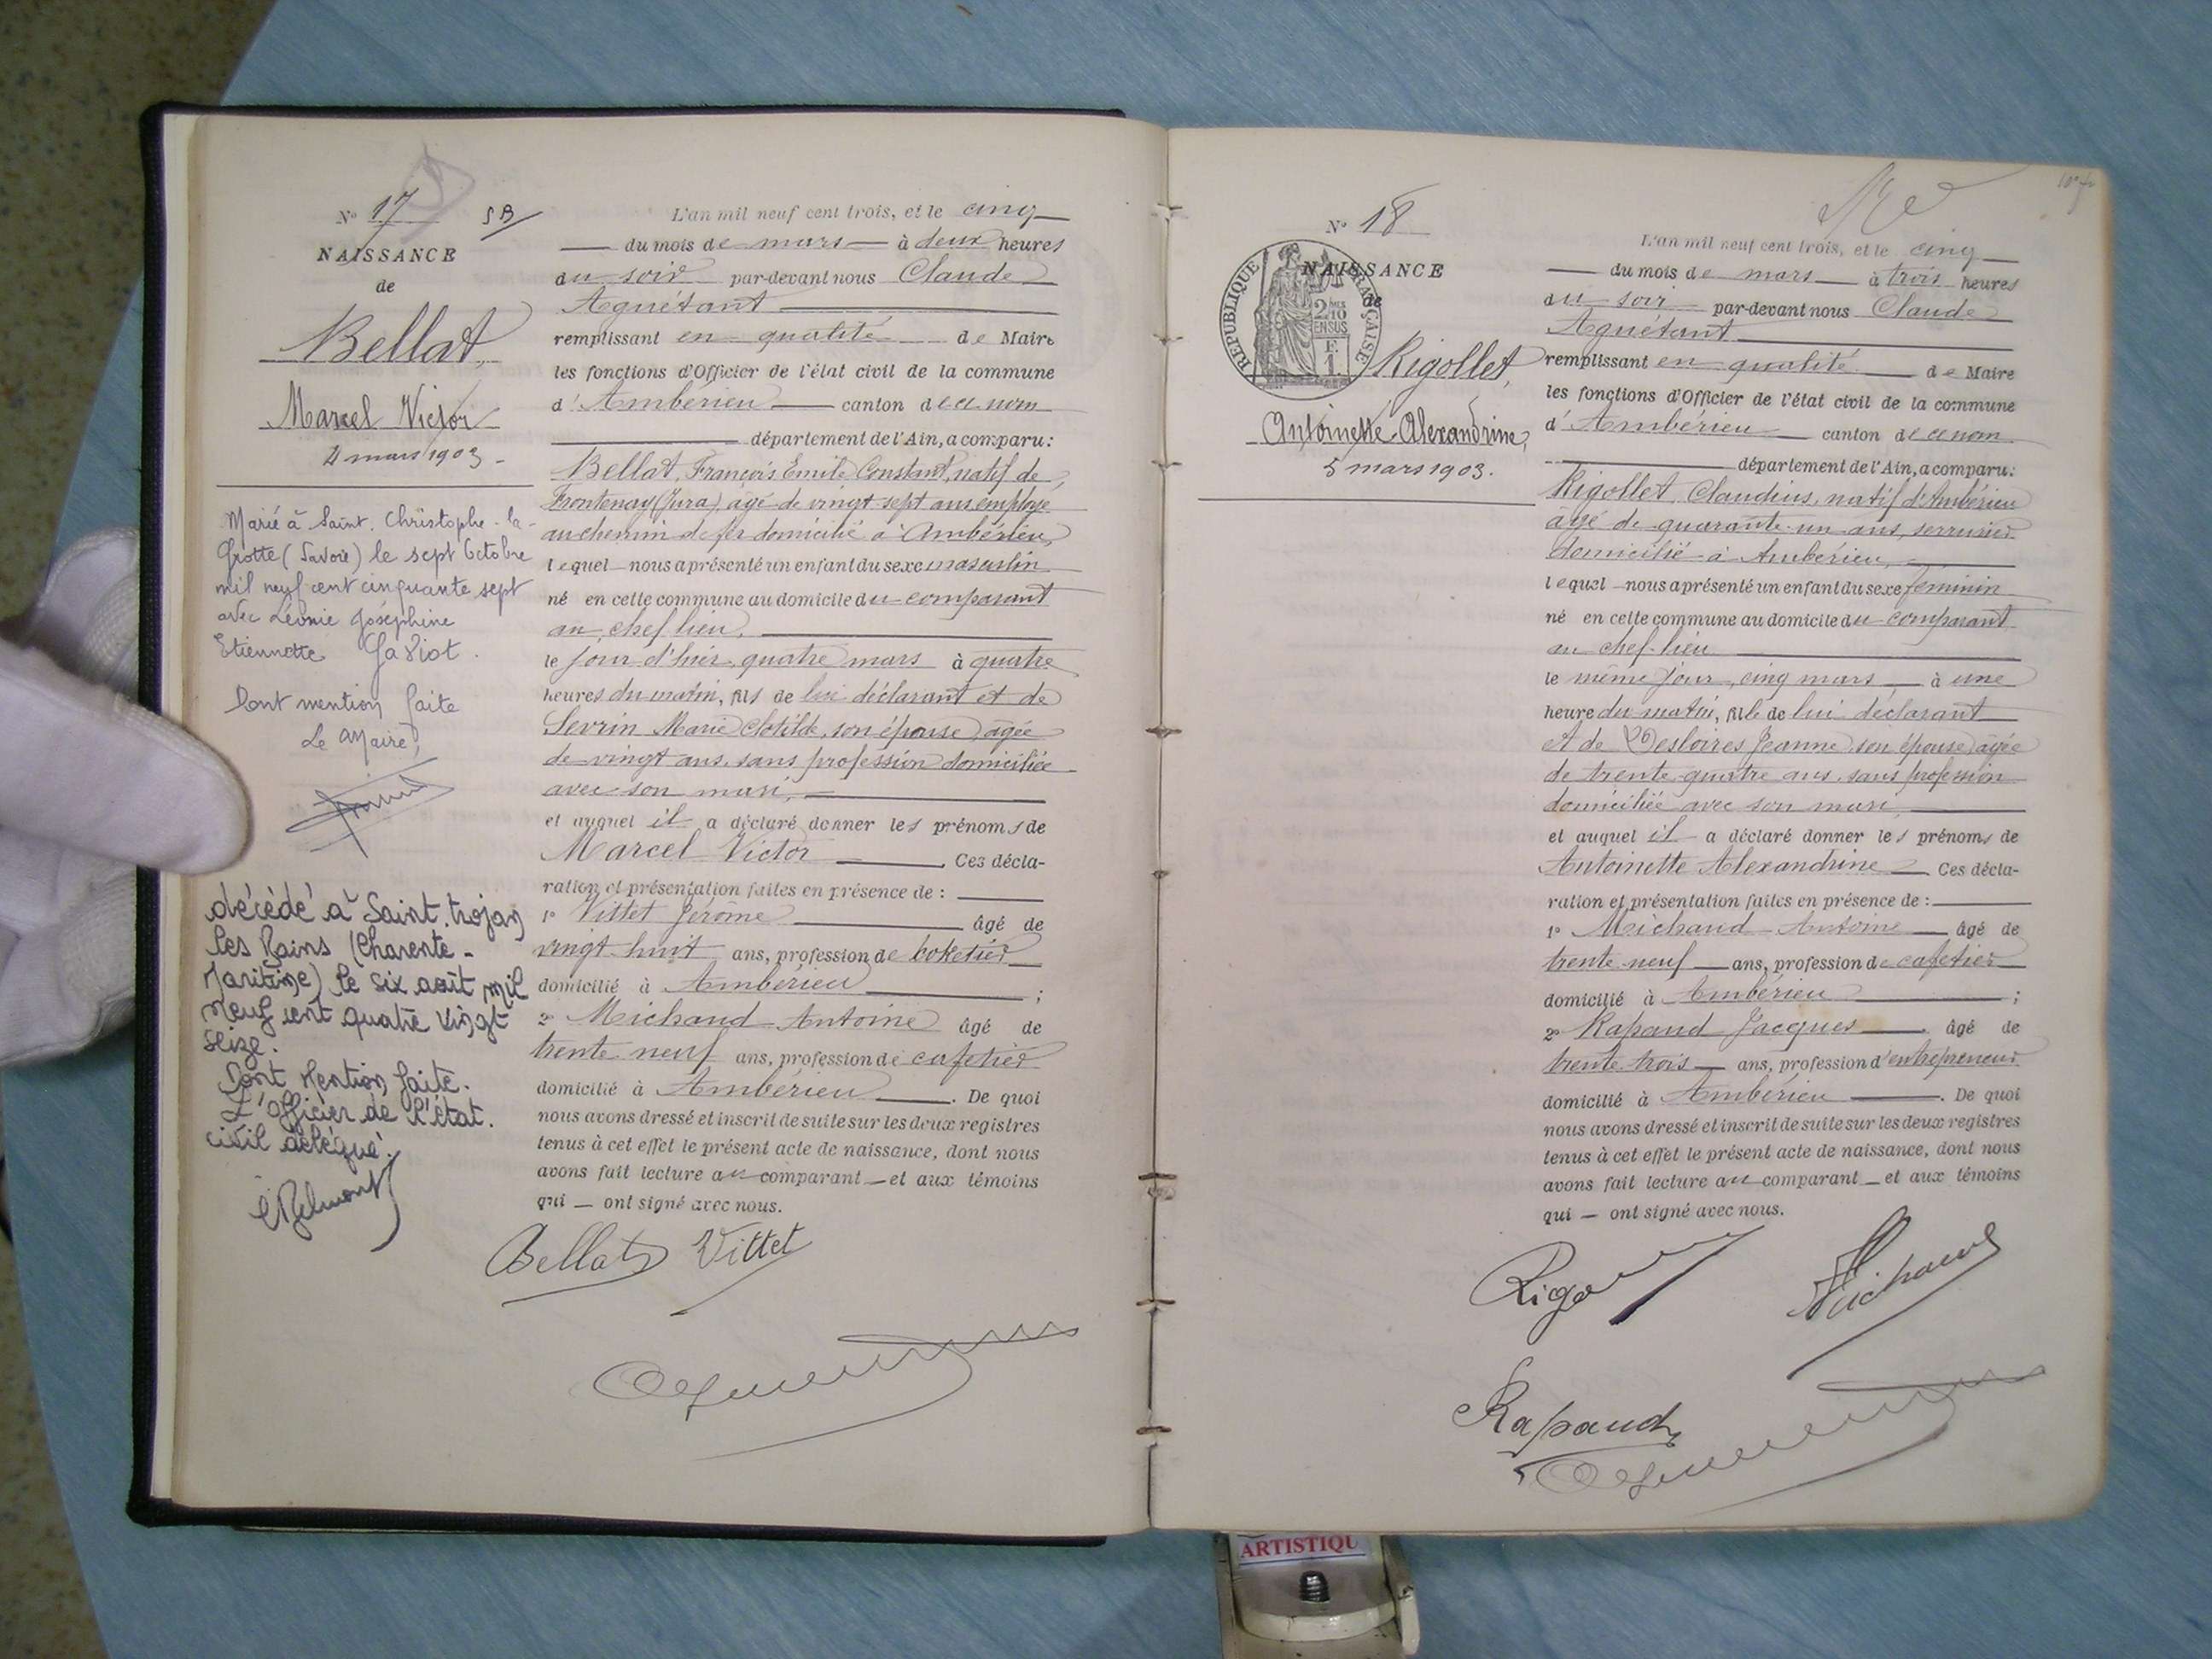 N° 17
SB
NAISSANCE
de
Bellat,
Marcel Victor
4 mars 1903
Marié à Saint. Christophe-la-
Grotte (Savoie) le sept Octobre
mil neuf cent cinquante sept
avec Léonie Joséphine
Etiennette Gaviot.
Dont mention faite
Le Maire,
décédé à Saint. trojan
les Bains (Charente-
Maritime) le six août mil
neuf cent quatre vingt
seize.
Dont Mention faite.
L'officier de l'état.
civil délégué.
L'an mil neuf cent trois, et le cinq
du mois de mars à deux heures
du soir par-devant nous Claude
Aguétant
remplissant en qualité de Maire
les fonctions d'Officier de l'état civil de la commune
d'Ambérieu canton de ce nom
département de l'Ain, a comparu:
Bellat, François Emile Constant, natif de
Frontenay (Jura) âgé de vingt-sept ans employé
au chemin de fer domicilié à Ambérieu,
lequel nous a présenté un enfant du sexe masculin
né en cette commune au domicile du comparant
au chef lieu,
le jour d'hier, quatre mars à quatre
heures du matin, fils de lui déclarant et de
Sevrin Marie Clotilde, son épouse, âgée
de vingt ans, sans profession domiciliée
avec son mari,
et auquel il a déclaré donner les prénoms de
Marcel Victor Ces décla-
ration et présentation faites en présence de :
1° Vittet Jérôme âgé de
vingt huit ans, profession de coketier
domicilié à Ambérieu ;
2° Michaud Antoine âgé de
trente neuf ans, profession de cafetier
domicilié à Ambérieu. De quoi
nous avons dressé et inscrit de suite sur les deux registres
tenus à cet effet le présent acte de naissance, dont nous
avons fait lecture au comparant et aux témoins
qui — ont signé avec nous.
Bellat Vittet
N° 18
NAISSANCE
de
RÉPUBLIQUE FRANÇAISE
2/10 EN SUS
F.
1
Rigollet,
Antoinette-Alexandrine,
5 mars 1903.
L'an mil neuf cent trois, et le cinq
du mois de mars à trois heures
du soir par-devant nous Claude
Aguétant
remplissant en qualité de Maire
les fonctions d'Officier de l'état civil de la commune
d'Ambérieu canton de ce nom
département de l'Ain, a comparu:
Rigollet, Claudius, natif d'Ambérieu
âgé de quarante-un ans, serrurier
domicilié à Ambérieu,
lequel nous a présenté un enfant du sexe féminin
né en cette commune au domicile du comparant
au chef-lieu
le même jour, cinq mars à une
heure du matin, fille de lui déclarant
et de Desloires Jeanne, son épouse, âgée
de trente-quatre ans, sans profession
domiciliée avec son mari,
et auquel il a déclaré donner les prénoms de
Antoinette Alexandrine Ces décla-
ration et présentation faites en présence de :
1° Michaud Antoine âgé de
trente-neuf ans, profession de cafetier
domicilié à Ambérieu ;
2° Rapaud Jacques âgé de
trente-trois ans, profession d'entrepreneur
domicilié à Ambérieu. De quoi
nous avons dressé et inscrit de suite sur les deux registres
tenus à cet effet le présent acte de naissance, dont nous
avons fait lecture au comparant et aux témoins
qui — ont signé avec nous.
Michaud
Rapaud
ARTISTIQU